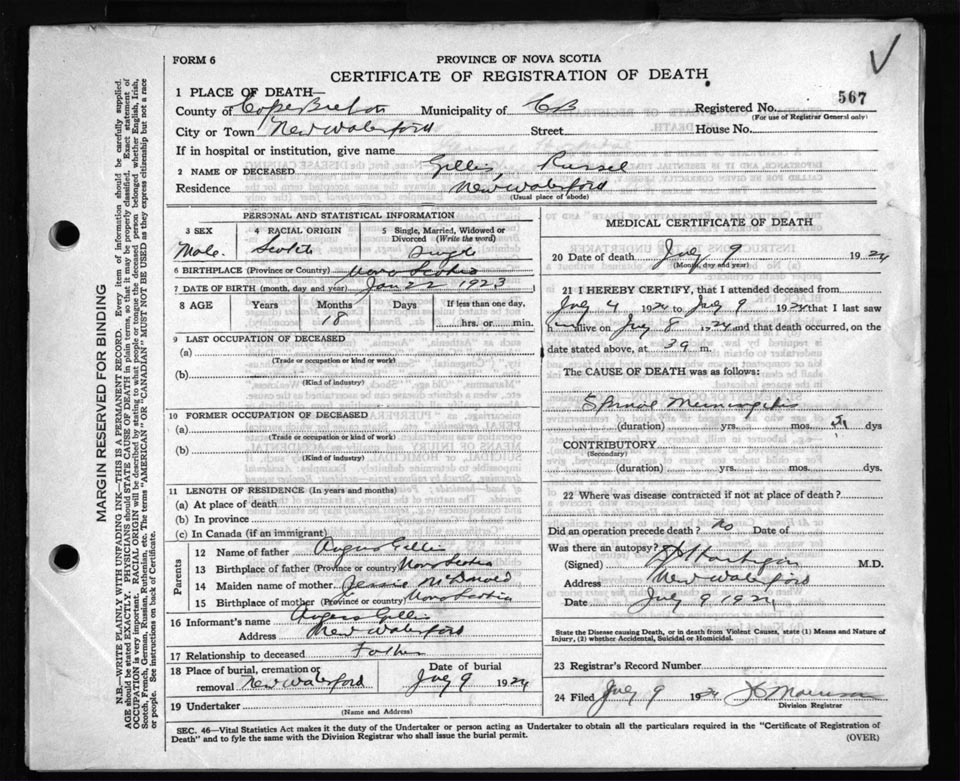 FORM 6
PROVINCE OF NOVA SCOTIA
CERTIFICATE OF REGISTRATION OF DEATH
567
1 PLACE OF DEATH—
County of Cape Breton Municipality of CB Registered No.
(For use of Registrar General only)
City or Town New Waterford Street House No.
If in hospital or institution, give name
2 NAME OF DECEASED Gillis, Russel
Residence New Waterford
(Usual place of abode)
PERSONAL AND STATISTICAL INFORMATION
3 SEX 4 RACIAL ORIGIN 5 Single, Married, Widowed or Divorced (Write the word)
Male Scotch Single
6 BIRTHPLACE (Province or Country) Nova Scotia
7 DATE OF BIRTH (month, day and year) Jan 22 1923
8 AGE Years Months Days If less than one day,
18 hrs. or min.
9 LAST OCCUPATION OF DECEASED
(a)
(Trade or occupation or kind or work)
(b)
(Kind of industry)
10 FORMER OCCUPATION OF DECEASED
(a)
(Trade or occupation or kind or work)
(b)
(Kind of industry)
11 LENGTH OF RESIDENCE (In years and months)
(a) At place of death
(b) In province
(c) In Canada (if an immigrant)
Parents
12 Name of father Angus Gillis
13 Birthplace of father (Province or country) Nova Scotia
14 Maiden name of mother Jessie McDonald
15 Birthplace of mother (Province or country) Nova Scotia
16 Informant's name Angus Gillis
Address New Waterford
17 Relationship to deceased Father
18 Place of burial, cremation or Date of burial
removal New Waterford July 9 1924
19 Undertaker
(Name and Address)
MEDICAL CERTIFICATE OF DEATH
20 Date of death July 9 1924
(Month, day and year)
21 I HEREBY CERTIFY, that I attended deceased from
July 4 1924 to July 9 1924 that I last saw
him alive on July 8 1924 and that death occurred, on the
date stated above, at 3 a m.
The CAUSE OF DEATH was as follows:
Spinal Meningitis
(duration) yrs. mos. dys
CONTRIBUTORY
(Secondary)
(duration) yrs. mos. dys.
22 Where was disease contracted if not at place of death?
Did an operation precede death? No Date of
Was there an autopsy?
(Signed) Hartigan M.D.
Address New Waterford
Date July 9 1924
State the Disease causing Death, or in death from Violent Causes, state (1) Means and Nature of
Injury, (2) whether Accidental, Suicidal or Homicidal.
23 Registrar's Record Number
24 Filed July 9 1924 Morrison
Division Registrar
SEC. 46—Vital Statistics Act makes it the duty of the Undertaker or person acting as Undertaker to obtain all the particulars required in the "Certificate of Registration of
Death" and to fyle the same with the Division Registrar who shall issue the burial permit.
(OVER)
MARGIN RESERVED FOR BINDING
N.B.—WRITE PLAINLY WITH UNFADING INK—THIS IS A PERMANENT RECORD. Every item of information should be carefully supplied.
AGE should be stated EXACTLY. PHYSICIANS should STATE CAUSE OF DEATH in plain terms, so that it may be properly classified. Exact statement of
OCCUPATION is very important. RACIAL ORIGIN will be described by stating to what people or tongue the deceased person belonged whether English, Irish,
Scotch, French, German, Russian, Ruthenian, etc. The terms "AMERICAN" or "CANADIAN" MUST NOT BE USED as they express citizenship but not a race
or people. See instructions on back of Certificate.